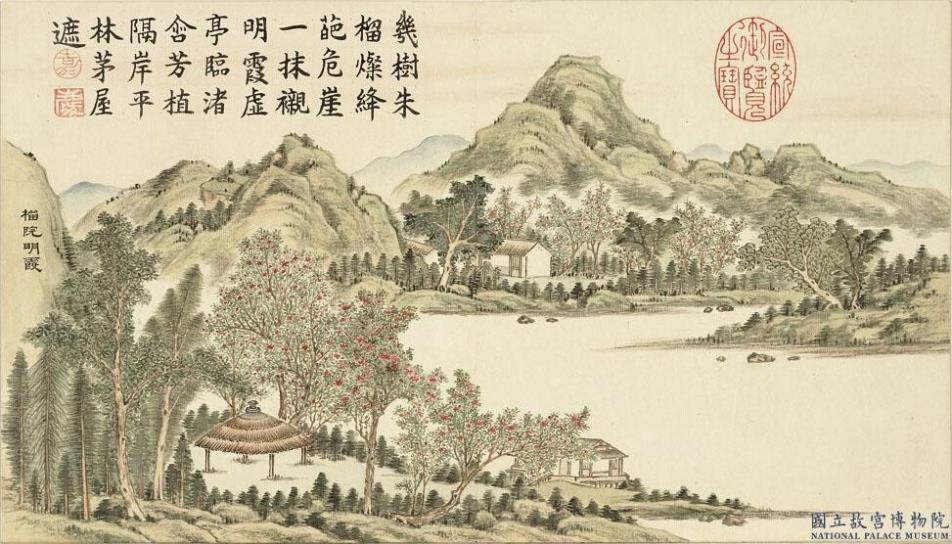 幾樹朱
榴燦絳
葩危崖
一抹襯
明霞虛
亭臨渚
含芳植
隔岸平
林茅屋
遮
宣統
御覽
之寶
榴院明霞
國立故宮博物院
NATIONAL PALACE MUSEUM